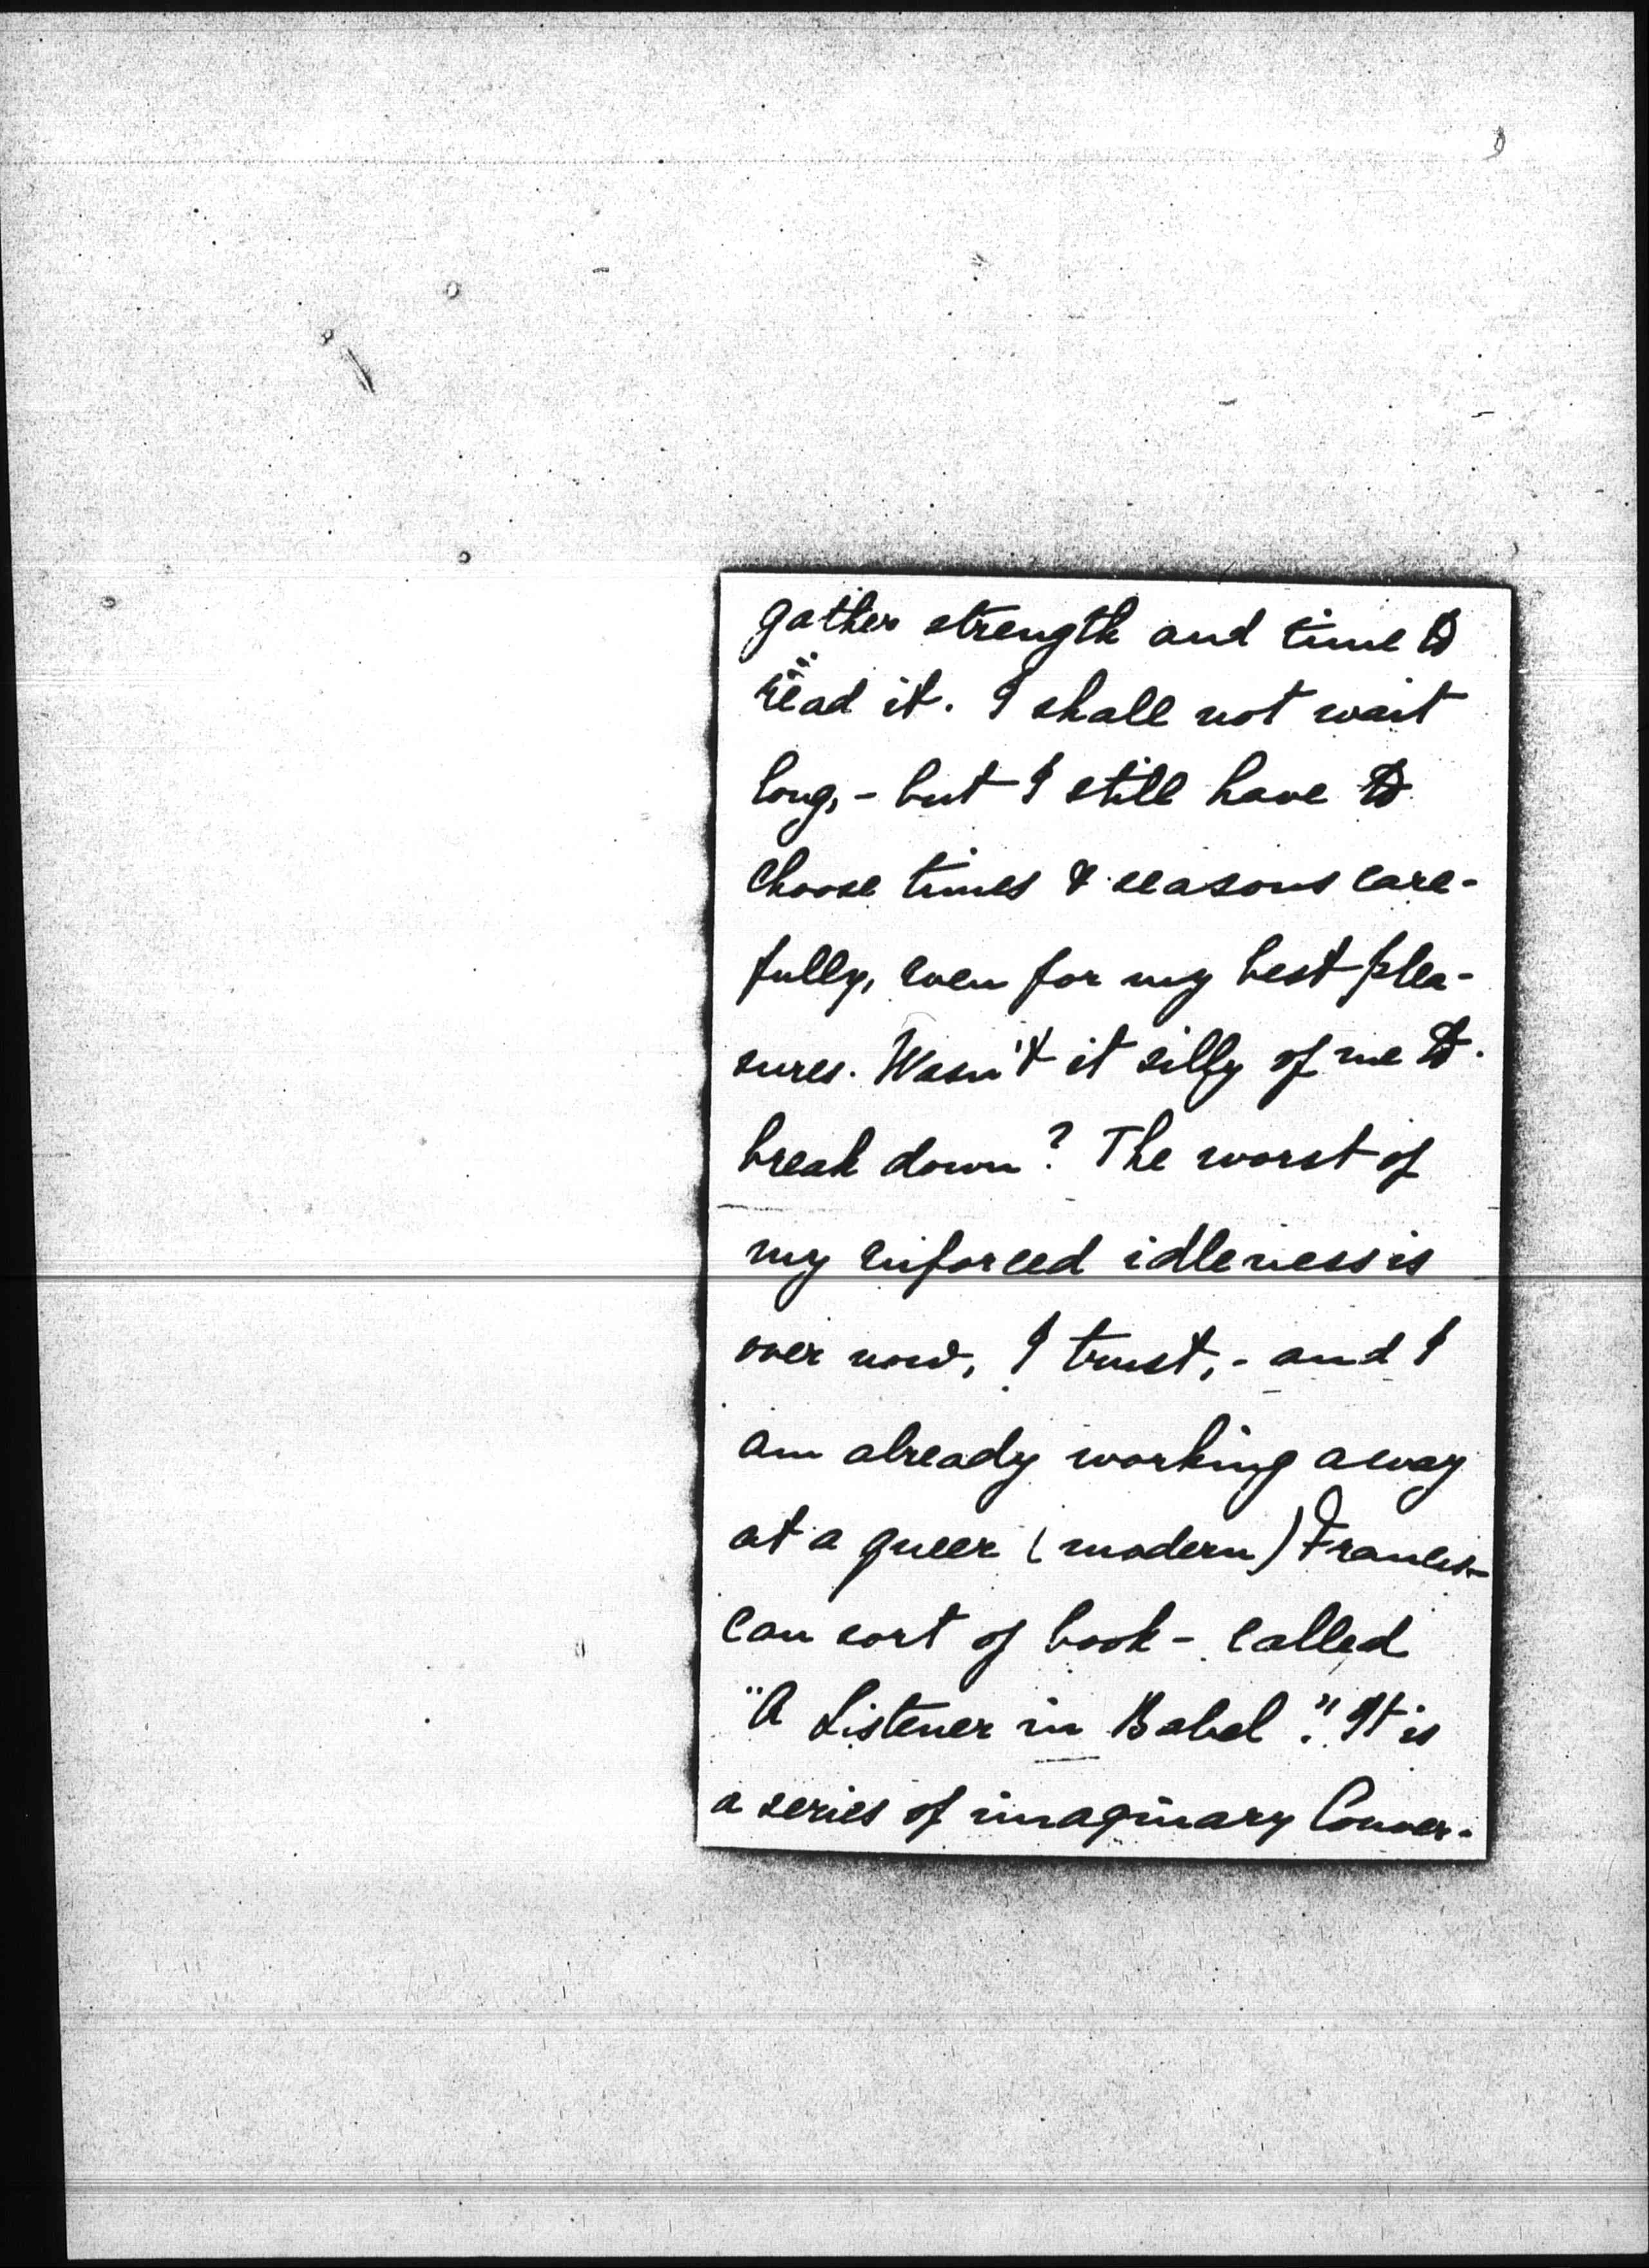 gather strength and time to
read it. I shall not wait
long, - but I still have to
choose times & seasons care-
fully, even for my best plea-
sures. Wasn't it silly of me to
break down? The worst of
my enforced idleness is
over now, I trust, - and I
am already working away
at a queer (modern) Francis-
can sort of book - called
"A Listener in Babel." It is
a series of imaginary Conver-